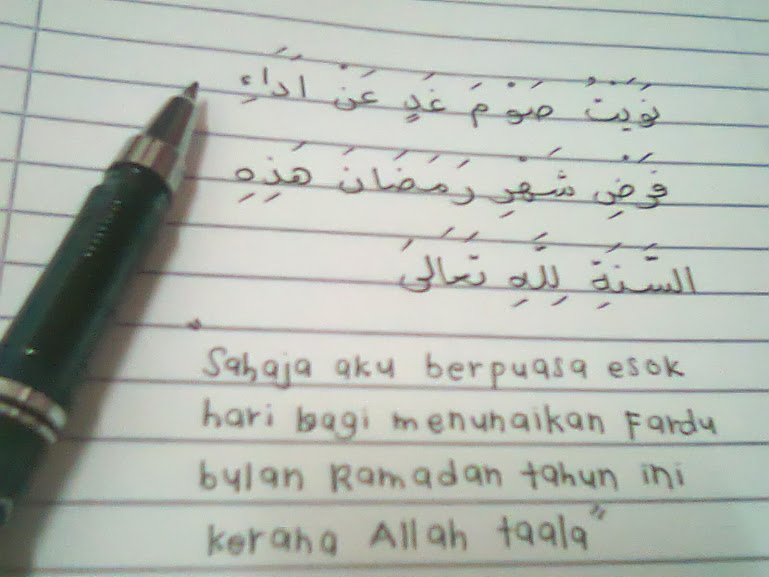 نَوَيْتُ صَوْمَ غَدٍ عَنْ اَدَاءِ
فَرْضِ شَهْرِ رَمَضَانَ هَذِهِ
السَّنَةِ لِلَّهِ تَعَالَى
"Sahaja aku berpuasa esok
hari bagi menunaikan Fardu
bulan Ramadan tahun ini
kerana Allah taala"